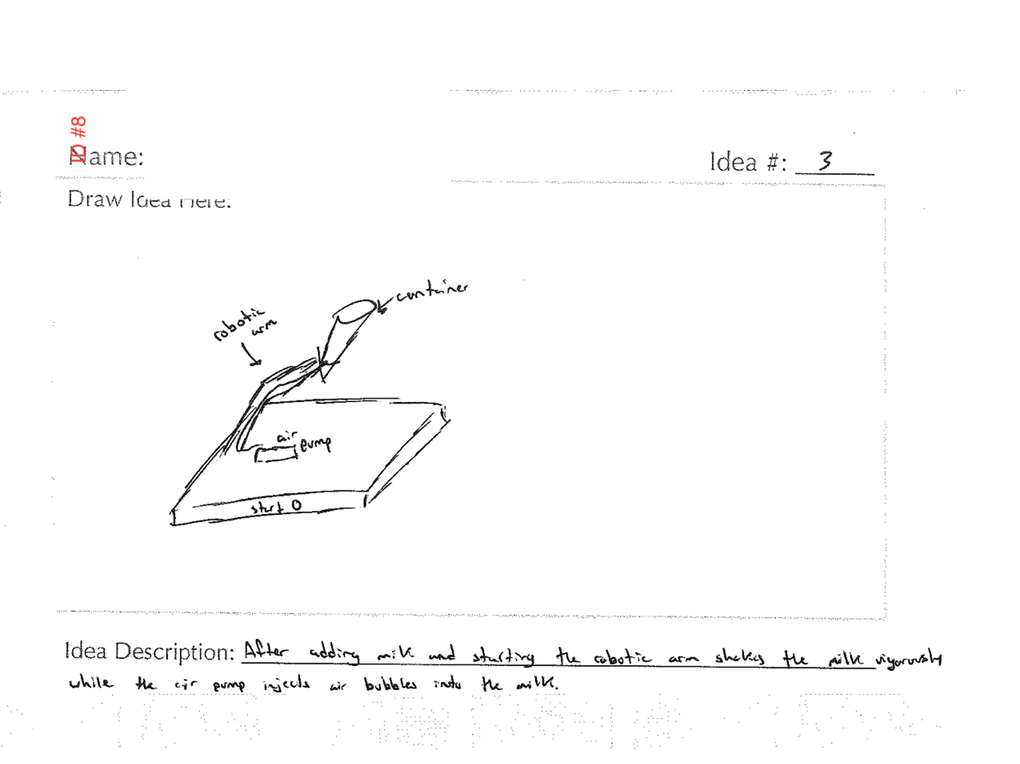 ID #8
Name:
Idea #: 3
Draw Idea Here:
container
robotic
arm
air
pump
start O
Idea Description: After adding milk and starting the robotic arm shakes the milk vigorously
while the air pump injects air bubbles into the milk.